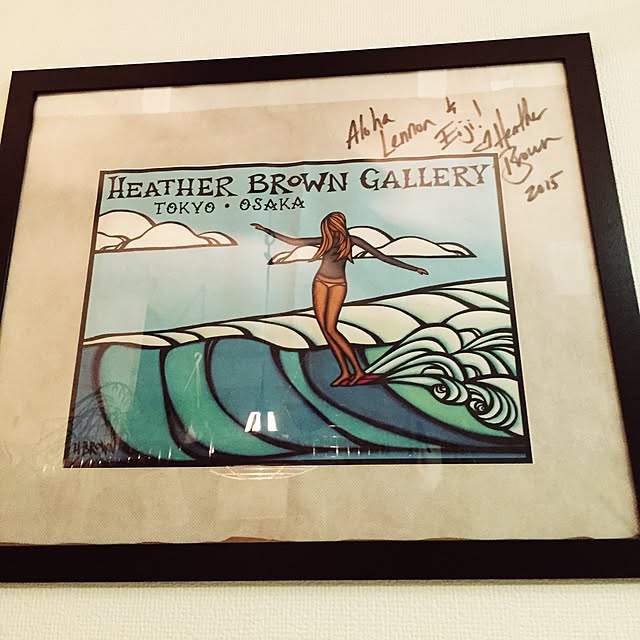 Aloha
Lennon &
Eiji!
Heather
Brown
2015
HEATHER BROWN GALLERY
TOKYO • OSAKA
H BROWN